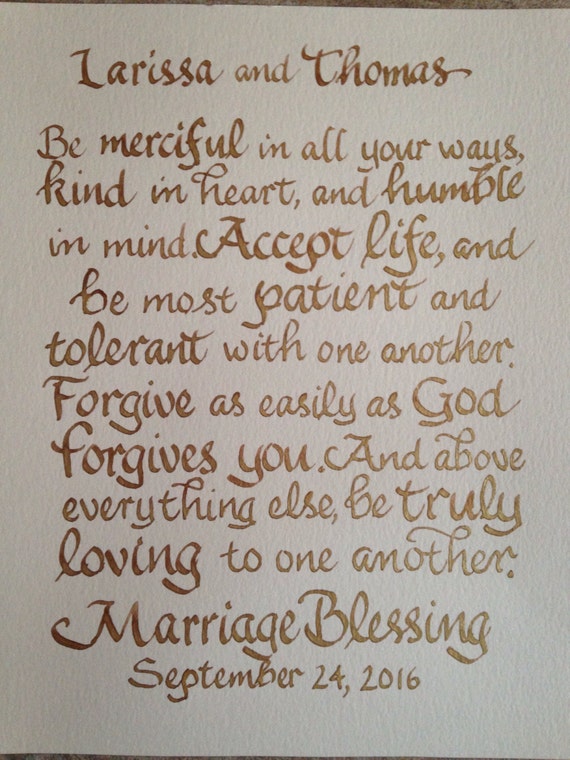 Larissa and Thomas
Be merciful in all your ways,
kind in heart, and humble
in mind. Accept life, and
be most patient and
tolerant with one another.
Forgive as easily as God
forgives you. And above
everything else, be truly
loving to one another.
Marriage Blessing
September 24, 2016